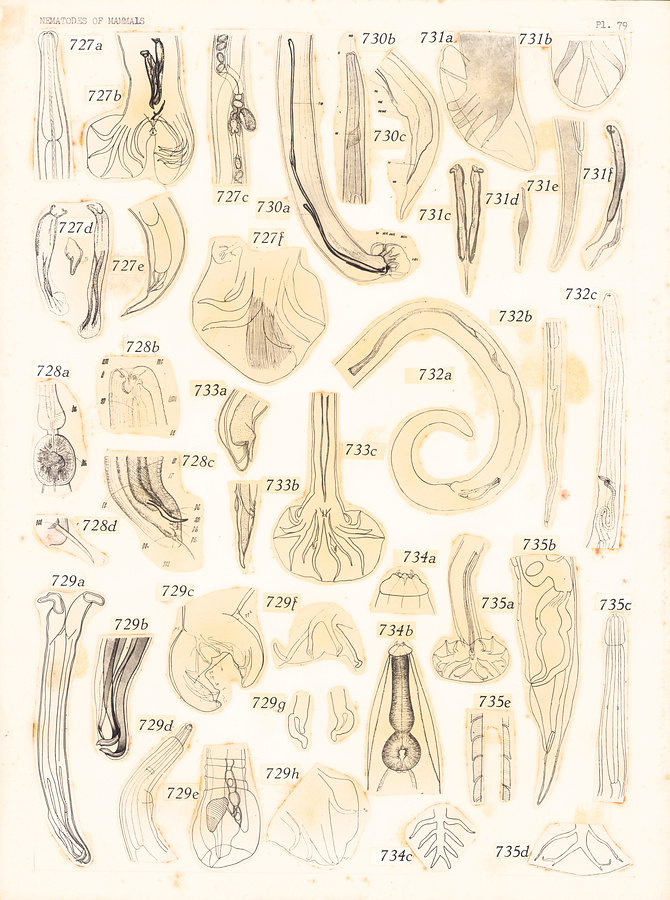 NEMATODES OF MAMMALS
Pl. 79
727a
727b
727c
730a
730b
730c
731a
731b
731c
731d
731e
731f
727d
727e
727f
728a
728b
728c
728d
733a
733b
733c
732a
732b
732c
734a
734b
735a
735b
735c
729a
729b
729c
729d
729e
729f
729g
729h
735e
734c
735d